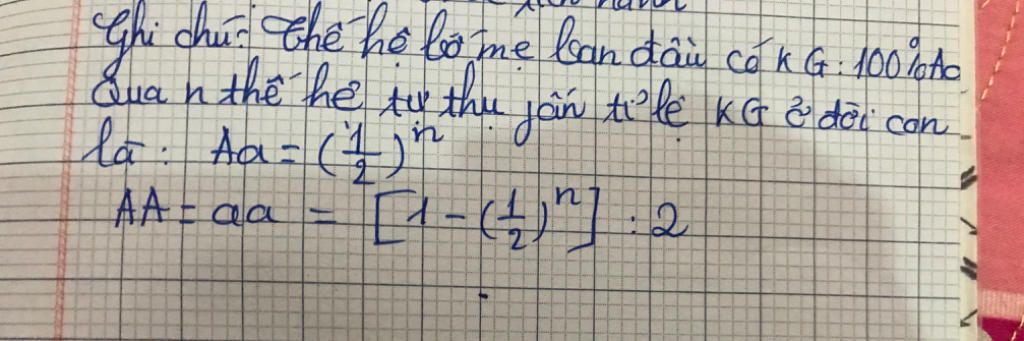 Ghi chú: Thế hệ bố mẹ ban đầu có KG: 100% Aa
Qua n thế hệ tự thụ phấn tỉ lệ KG ở đời con
là: Aa = (1/2)^n
AA = aa = [1 - (1/2)^n] : 2